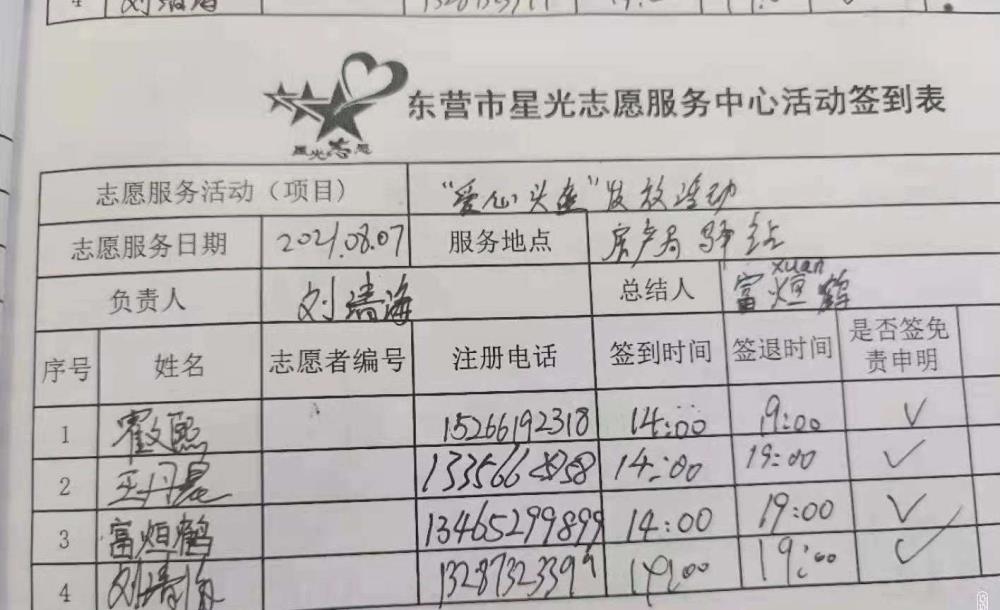 4 刘靖海
星光志愿
东营市星光志愿服务中心活动签到表
志愿服务活动（项目） “爱心头盔”发放活动
志愿服务日期 2021.08.07 服务地点 房产局驿站
xuan
负责人 刘靖海 总结人 富烜鹤
序号 姓名 志愿者编号 注册电话 签到时间 签退时间 是否签免
责申明
1 熙 15266192318 14:00 19:00 ✓
2 王丹晨 14:00 19:00 ✓
3 富烜鹤 13465299899 14:00 19:00 ✓
4 刘靖海 13287323399 14:00 19:00 ✓